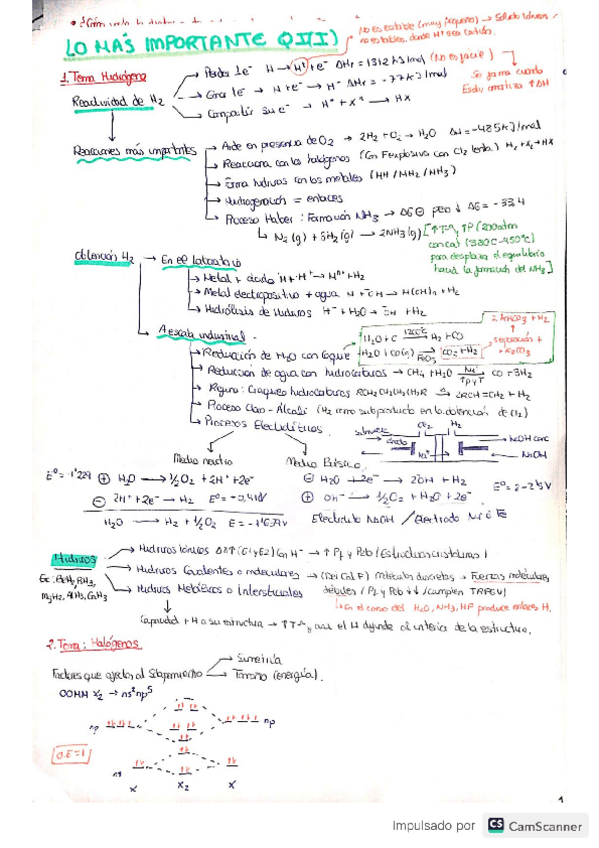 LO MÁS IMPORTANTE QIII)
No es estable (muy pequeño) → Solido iónicos
no estables, donde H+ sea catión.
1. Tema Hidrógeno
Reactividad de H2
Perder 1e- H → H+ + e- ΔHr = 1312 kJ/mol (No es fácil)
Gana 1e- → H + e- → H- ΔHr = -77 kJ/mol
Compartir su e- → H° + X° → HX
Se forma cuando
ΔH
Reacciones más importantes
Arde en presencia de O2 → 2H2 + O2 → H2O ΔH = -485 kJ/mol
Reacciona con los halógenos (Con F explosiva con Cl2 lenta) H2 + X2 → HX
Forma hidruros con los metales (MH / MH2 / MH3)
Hidrogenación = enlaces
Proceso Haber: Formación NH3 → ΔG ⊖ pero ↓ ΔG = -33,4
N2 (g) + 3H2 (g) → 2NH3 (g) [↑Tª y ↑P (200atm
con cat (380°C-450°C)
para desplazar el equilibrio
hacia la formación del NH3]
Obtención H2
En el laboratorio
Metal + ácido M + H+ → Mn+ + H2
Metal electropositivo + agua M + OH → M(OH)n + H2
Hidrólisis de Hidruros H- + H2O → OH + H2
A escala industrial.
Reducción de H2O con Coque
H2O + C 1200°C H2 + CO
H2O + CO(g) FeO3 CO2 + H2
separación +
+ K2CO3
Reducción de agua con hidrocarburos → CH4 + H2O Ni ↑P y T CO + 3H2
Craqueo hidrocarburos RCH2CH2CH2CH2R → 2RCH=CH2 + H2
Proceso Cloro - Álcali (H2 como subproducto en la obtención de Cl2)
Procesos Electrolíticos
Cl2 H2
salmuera
ánodo
Na+
NaOH conc
NaOH
Medio neutro Medio Básico
E° = -1'229 ⊕ H2O → 1/2 O2 + 2H+ + 2e-
⊖ H2O + 2e- → 2OH + H2
⊖ 2H+ + 2e- → H2
⊕ OH- → 1/2 O2 + H2O + 2e-
H2O → H2 + 1/2 O2
Electrolito NaOH / Electrodo Ni ó Fe
Hidruros
Hidruros iónicos
→ ↑ Pf y Peb / Estructuras cristalinas
Hidruros Covalentes o moleculares → (Del Cal F) moléculas discretas → Fuerzas moleculares
débiles / Pf y Peb ↓↓ / cumplen TRPEV
En el caso del H2O, NH3, HF produce enlaces H.
Hidruros Metálicos o Intersticiales
Capacidad + H a su estructura → ↑Tª y así el H difunde al interior de la estructura.
2. Tema: Halógenos
Factores que afectan al Solapamiento
Simetría
Tamaño (energía).
OOMM X2 → ns2np5
np np
O.E = 1
ns
X X2 X
1
Impulsado por CS CamScanner